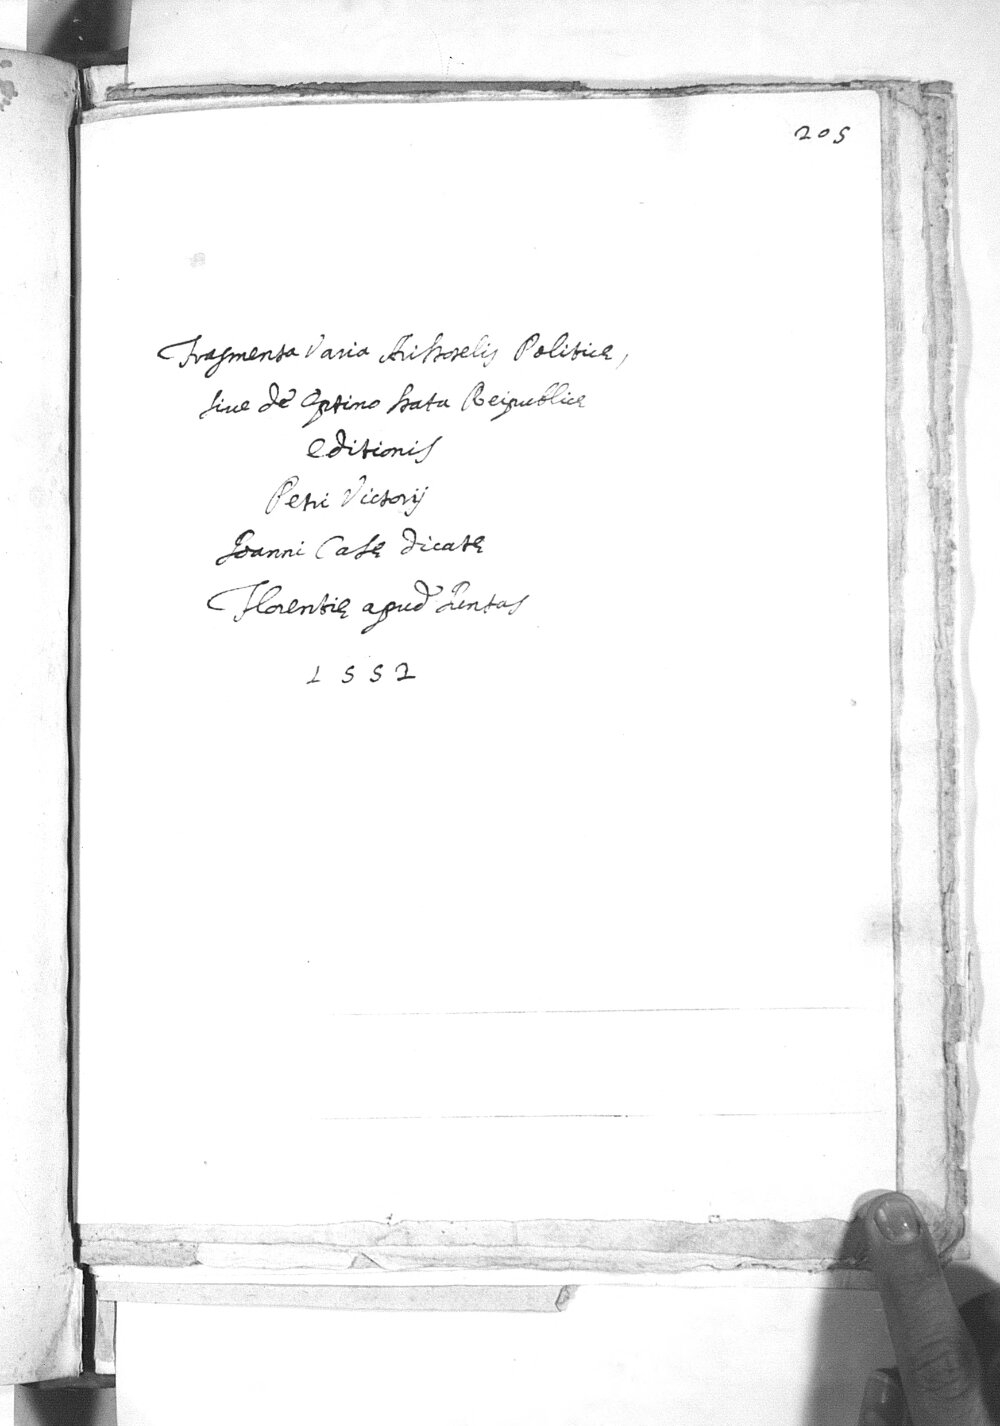 205
Fragmenta Varia Aristotelis Politicę,
siue de Optimo statu Reipublicę
editionis
Petri Victorij
Ioanni Casę dicatę
Florentię apud Iuntas
1552